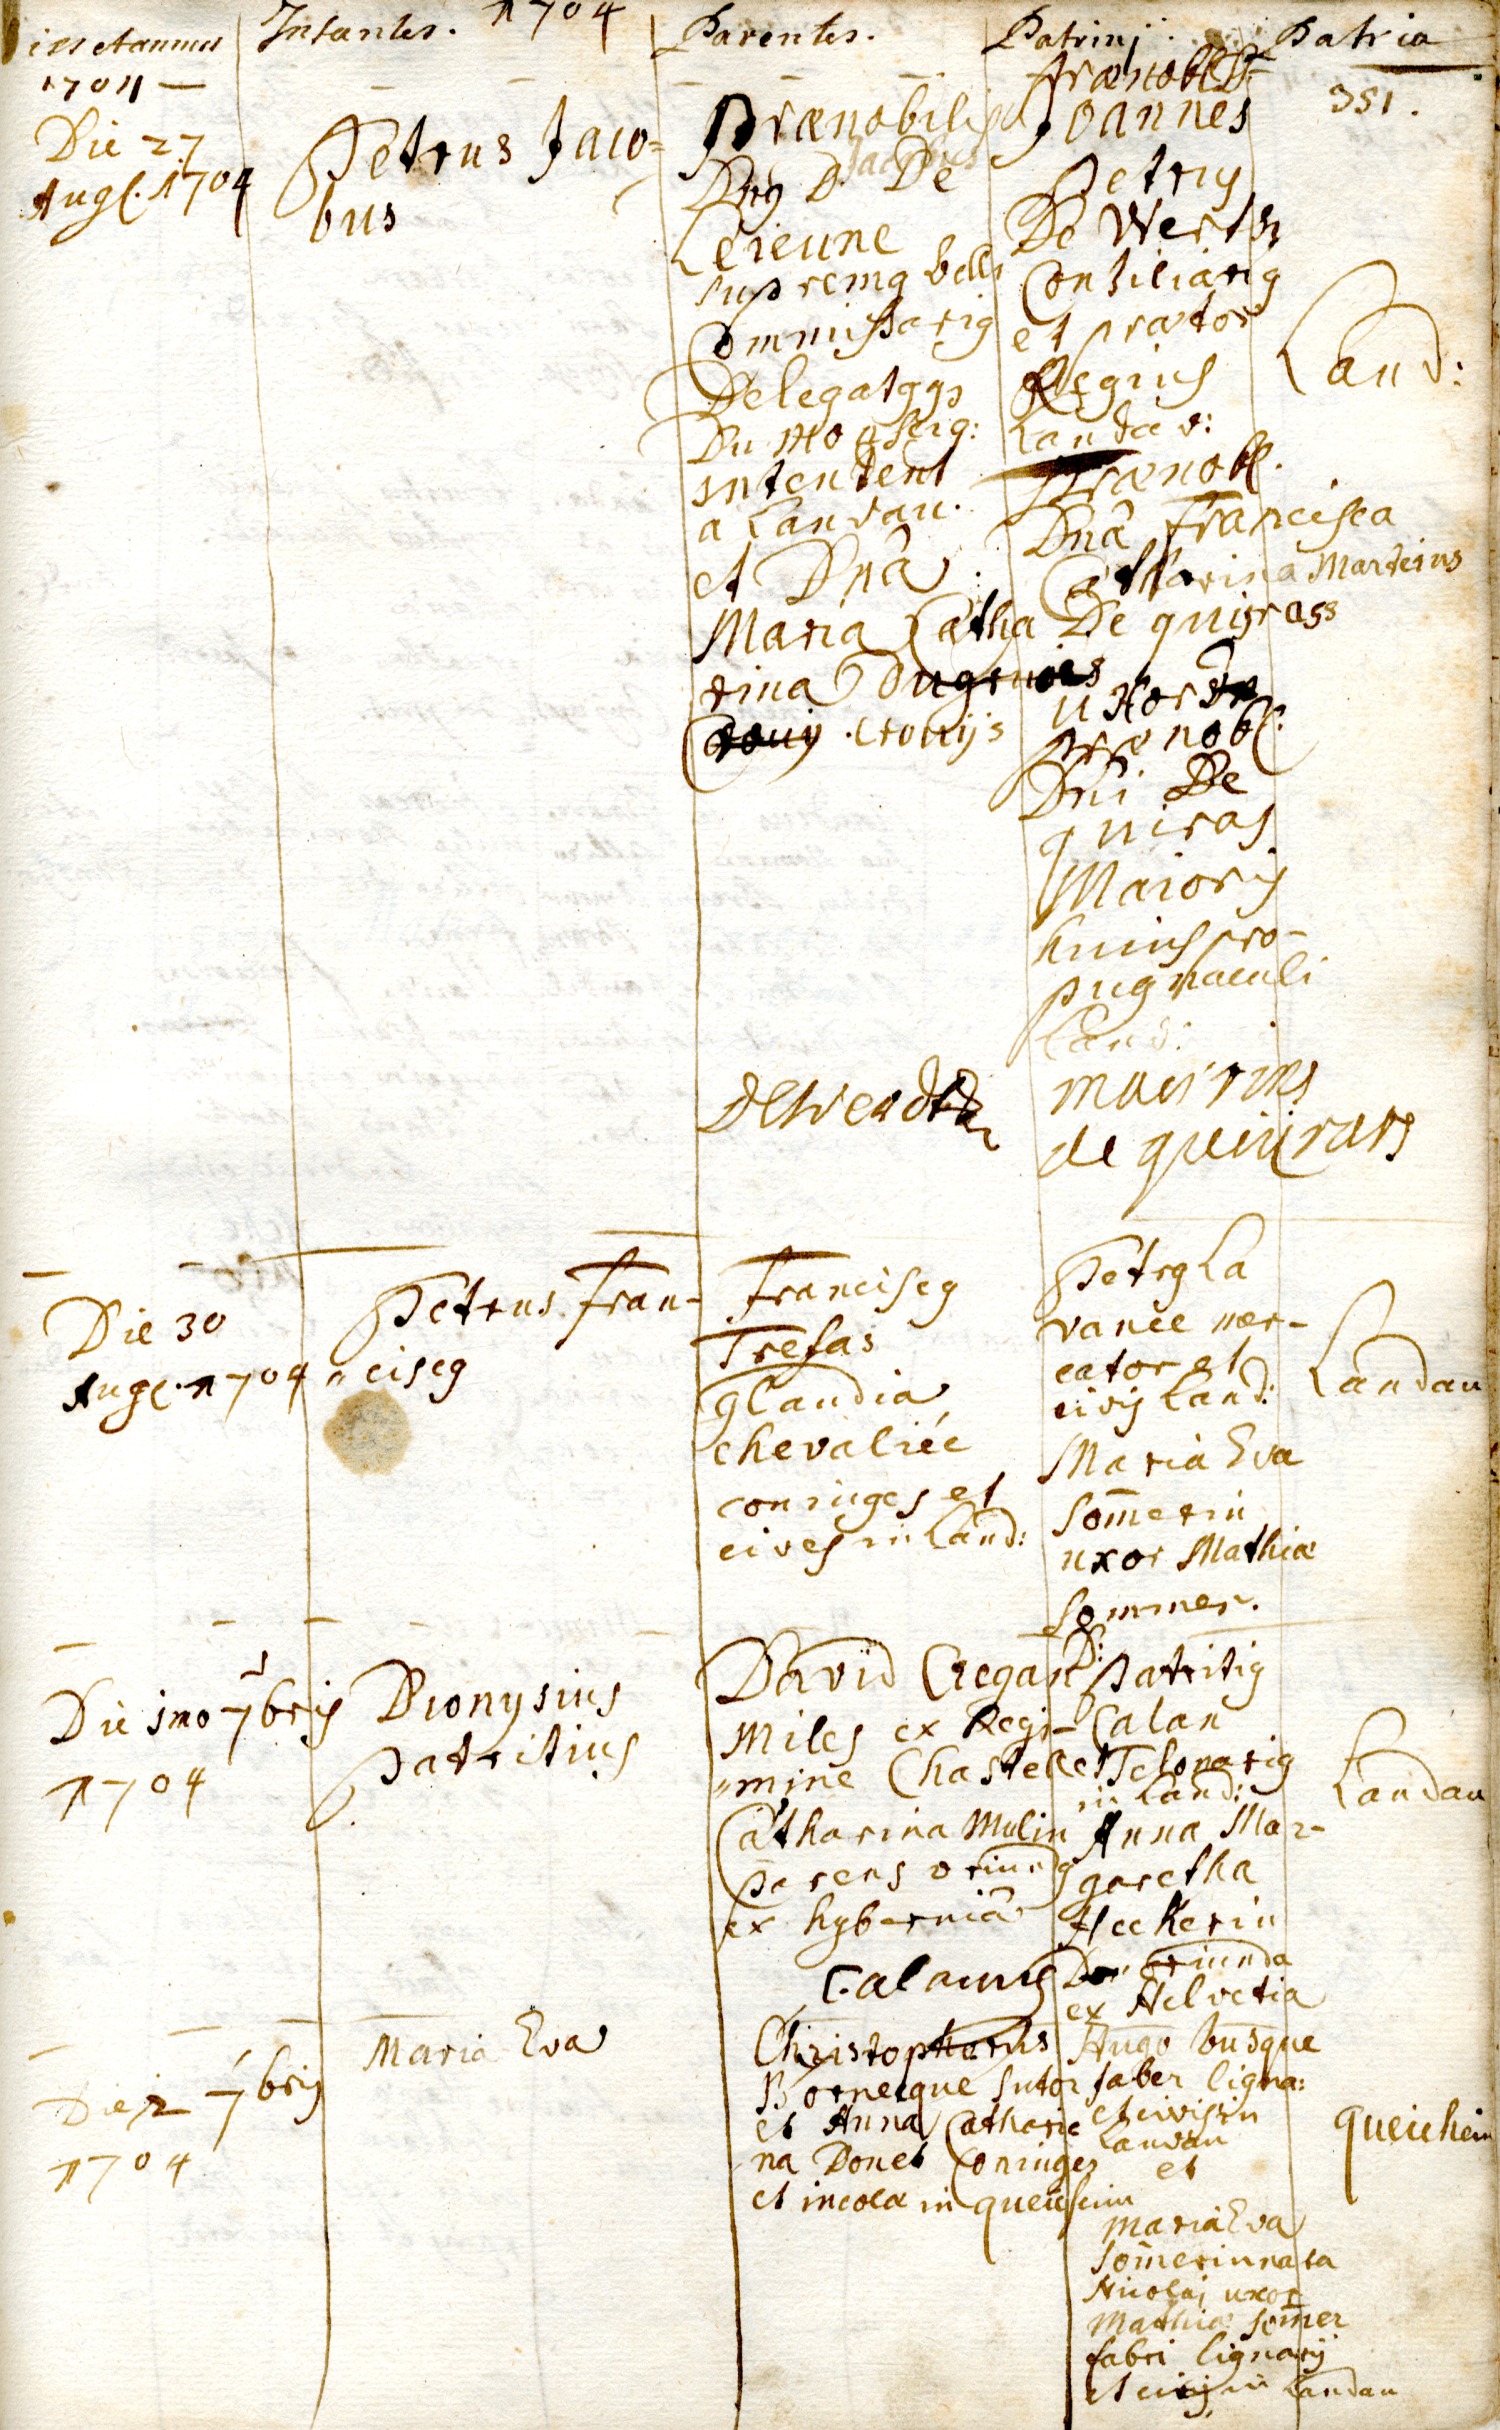 Infantes. 1704
Parentes.
Patrinj
Patria
1704
351.
Die 27
Aug. 1704
Petrus Jaco=
bus
Prænobilis
Jacobus
D. De
Lejeune
supremg belli
Commissarig
Delegatggs
Du
intendent
a Landau.
et Dnâ
Maria Catha
rina
crouijs
Prænobl. D.
Joannes
Petrg
De Werth
Consiliarig
et prætor
Regius
Landav:
Prænobl.
Dnâ Francisca
Catharina Marteins
De quisrass
uxor
prænobl.
Dni De
quiras
Maioris
huius pro-
pugnaculi
Land:
de
Land:
Die 30
Aug. 1704
Petrus Fran-
ciscg
Franciscg
Trefas
Glaudia
chevaliée
coniuges et
cives in Land:
Petrg La
vanee mer-
cator et
civis Land:
Maria Eva
Som̄erin
uxor Mathiæ
Sommer.
Landau
Die 1mo 7bris
1704
Dionysius
Patritius
David Cregan
Miles ex Regi-
mine Chastelet
Catharina Mulin
parens oriung
ex hyberniâ
D: Patritig
Calan
Telonarig
in Land:
Anna Mar-
garetha
Heckerin
oriunda
ex Helvetia
Landau
Die 2 7bris
1704
Maria Eva
Christopherus
Bornesque sutor
et Anna Cathari
na Donet Coniuges
et incolæ in
Hugo busque
faber ligna:
et civis in
Landau
et
Maria Eva
Som̄erin nata
Nicolaj uxor
Mathiæ Som̄er
fabri lignarij
et civis in Landau
queichein